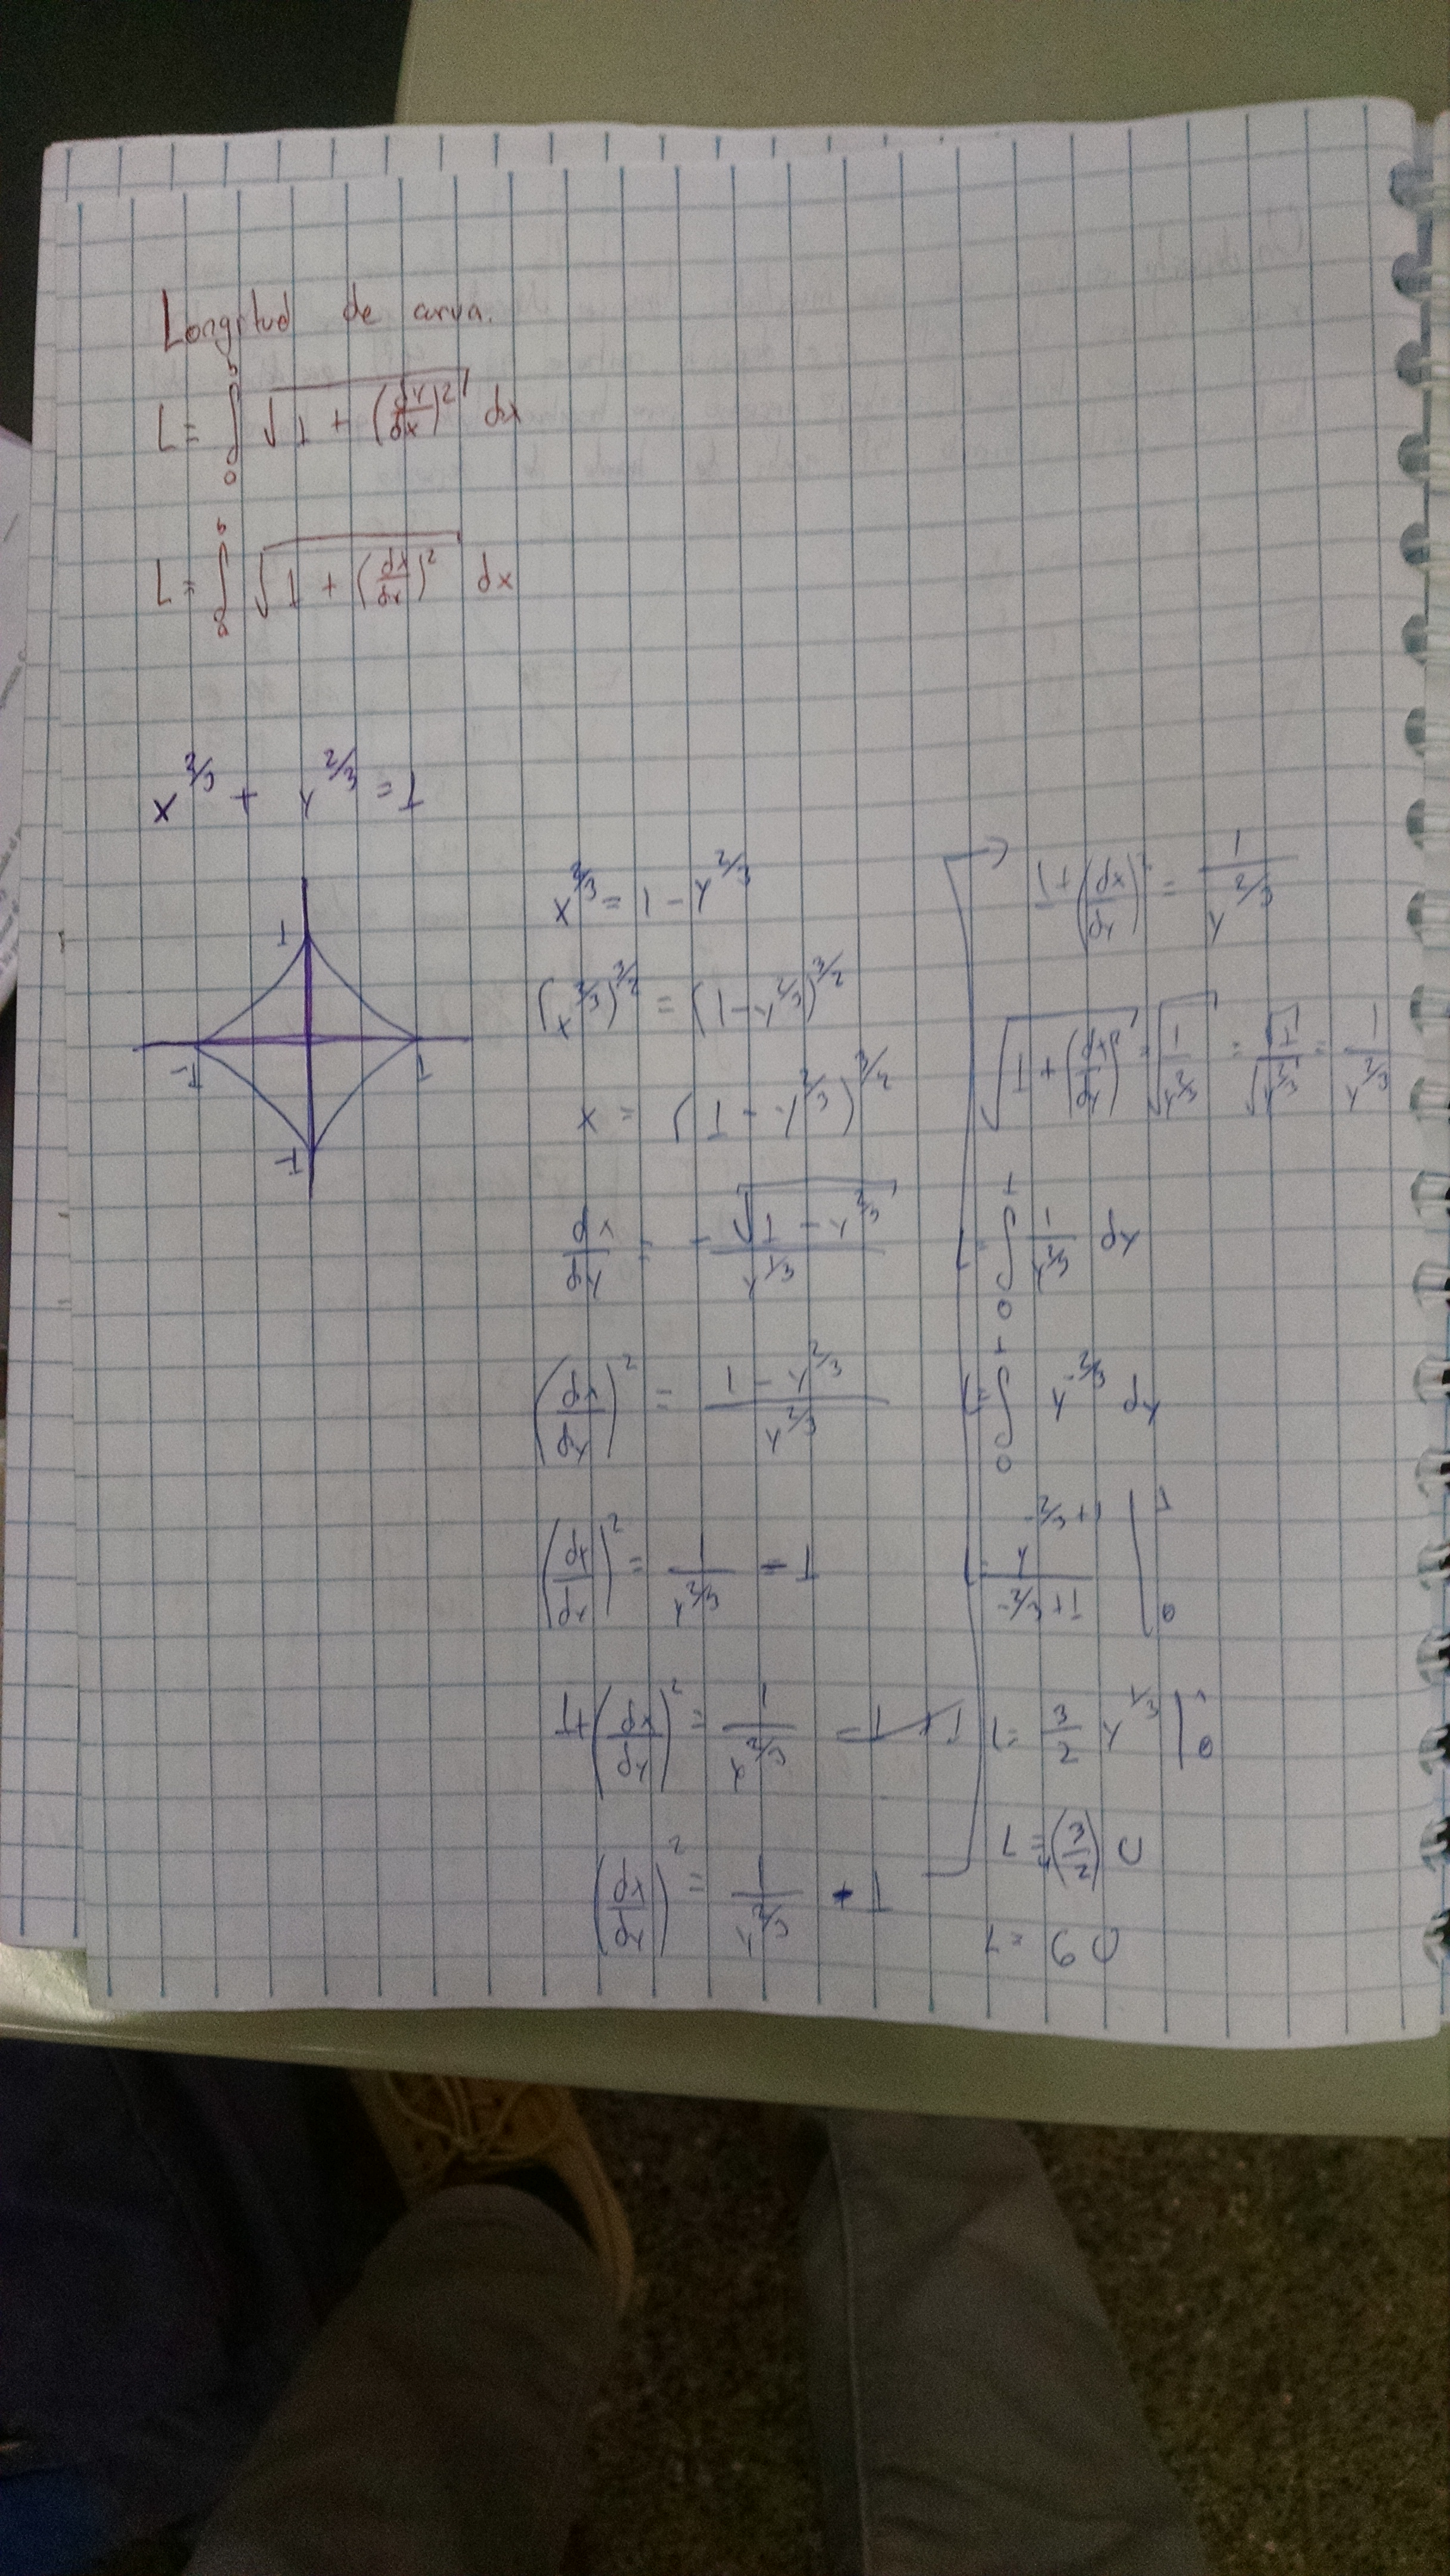 Longitud de curva.
L = ∫₀ᵇ √(1 + (dy/dx)²) dx
L = ∫ₐᵇ √(1 + (dx/dy)²) dx
x^(2/3) + y^(2/3) = 1
1
-1 1
-1
x^(2/3) = 1 - y^(2/3)
(x^(2/3))^(3/2) = (1 - y^(2/3))^(3/2)
x = (1 - y^(2/3))^(3/2)
dx/dy = - √(1 - y^(2/3)) / y^(1/3)
(dx/dy)² = (1 - y^(2/3)) / y^(2/3)
(dx/dy)² = 1/y^(2/3) - 1
1 + (dx/dy)² = 1/y^(2/3) - 1 + 1
(dx/dy)² = 1/y^(2/3) + 1
1 + (dx/dy)² = 1/y^(2/3)
√(1 + (dx/dy)²) = √(1/y^(2/3)) = √1/√(y^(2/3)) = 1/y^(2/3)
L = ∫₀¹ 1/y^(2/3) dy
L = ∫₀¹ y^(-2/3) dy
L = y^(-2/3 + 1) / (-2/3 + 1) |₀¹
L = 3/2 y^(1/3) |₀¹
L = 4(3/2) U
L = 6 U